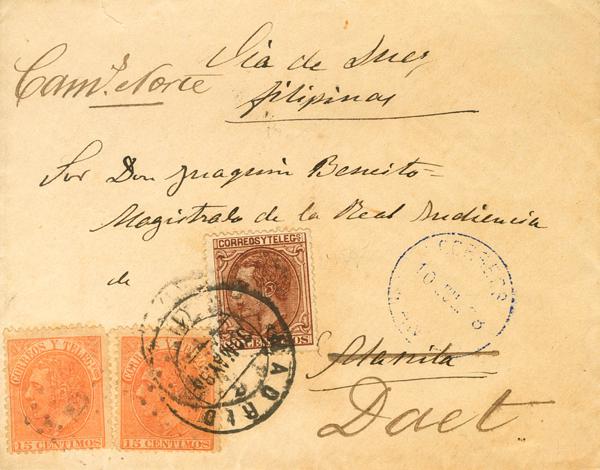 Via de Suez
Cam.s Norte
Filipinas
Sor Don Joaquin Beneito=
Magistrado de la Real Audiencia
de
CORREOS Y TELEGS
CORREOS
10
CORREOS Y TELEG
CORREOS Y TELEG
20 CENTIMOS
MADRID
Manila
15 CENTIMOS
15 CENTIMOS
Daet